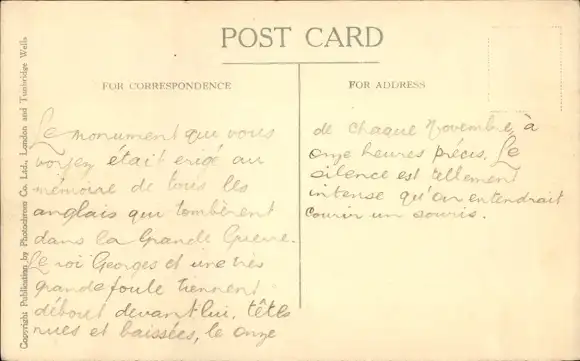 POST CARD
FOR CORRESPONDENCE
FOR ADDRESS
Copyright Publication by Photochrom Co. Ltd., London and Tunbridge Wells
Le monument que vous
voyez était erigé au
mémoire de tous les
anglais qui tombèrent
dans la Grande Guerre.
Le roi Georges et une très
grande foule tiennent
débout devant lui, têtes
nues et baissées, le onze
de chaque Novembre, à
onze heures précis. Le
silence est tellement
intense qu'on entendrait
courir un souris.